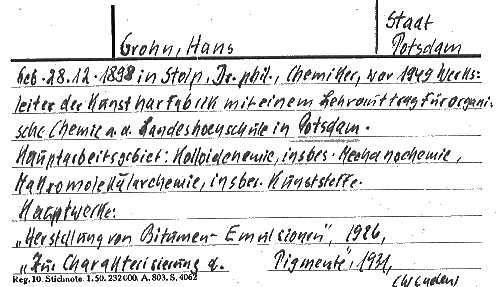 Staat
Grohn, Hans Potsdam
Geb. 28.12.1898 in Stolp, Dr. phil., Chemiker, war 1949 Werks-
leiter der Kunstharzfabrik mit einem Lehrauftrag für organi-
sche Chemie a.d. Landeshochschule in Potsdam.
Hauptarbeitsgebiet: Kolloidchemie, insbes. Mechanochemie,
Makromolekularchemie, insbes. Kunststoffe.
Hauptwerke:
„Herstellung von Bitumen-Emulsionen", 1926,
„Zur Charakterisierung d. Pigmente", 1931,
Reg. 10. Stichnote. 1. 50. 232000. A. 803. S. 4062
(wenden)